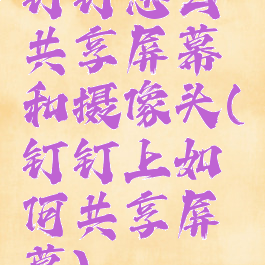 钉钉怎么
共享屏幕
和摄像头(
钉钉上如
何共享屏
幕)